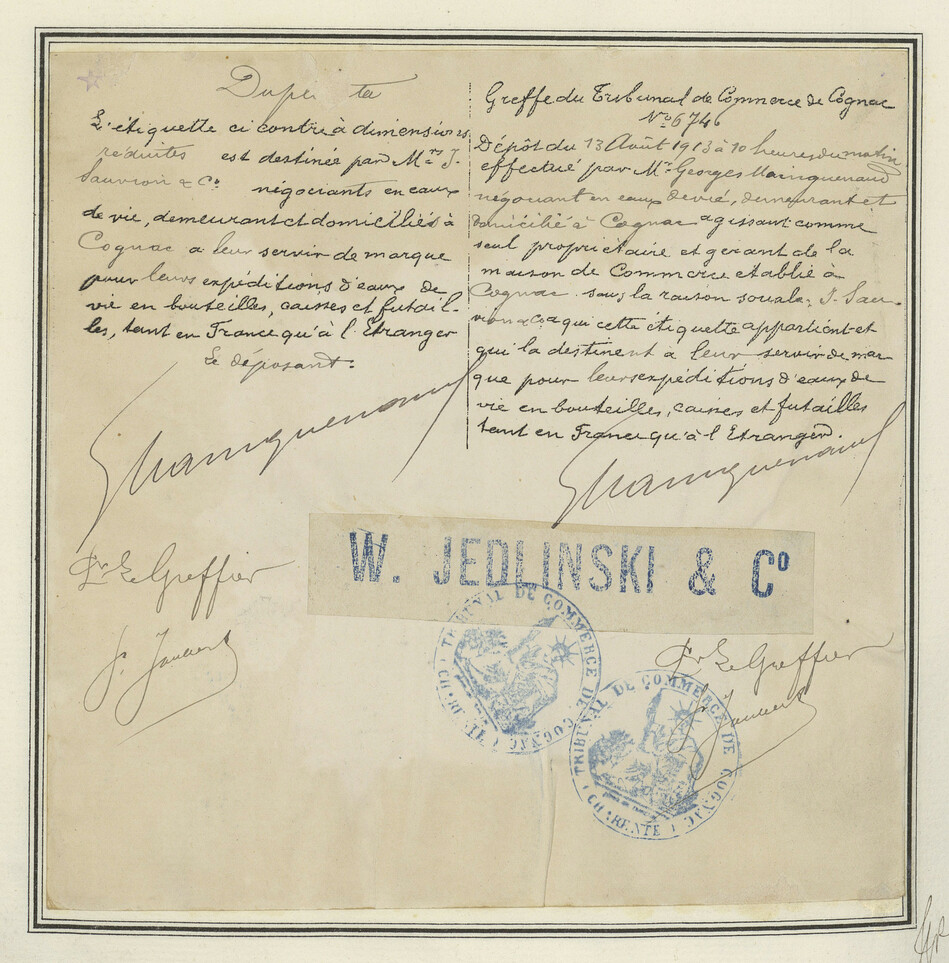 Duplicata
L'étiquette ci contre à dimensions
réduites est destinée par M.rs J.
Sauvion & Co négociants en eaux
de vie, demeurant et domiciliés à
Cognac a leur servir de marque
pour leurs expéditions d'eaux de
vie en bouteilles, caisses et futail-
les, tant en France qu'à l'Etranger
Le déposant.
GMainguenaud
Pr Le Greffier
J. Jaubert
Greffe du Tribunal de Commerce de Cognac
No 6746
Dépôt du 13 Août 1913 à 10 heures du matin
effectué par Mr Georges Mainguenaud
négociant en eaux de vie, demeurant et
domicilié à Cognac agissant comme
seul propriétaire et gérant de la
maison de Commerce etablie à
Cognac sous la raison sociale, J. Sau-
vion & Co a qui cette étiquette appartient et
qui la destinent à leur servir de mar-
que pour leurs expéditions d'eaux de
vie en bouteilles, caisses et futailles
tant en France qu'à l'Etranger.
GMainguenaud
W. JEDLINSKI & Co
TRIBUNAL DE COMMERCE DE COGNAC
(CHARENTE)
Pr Le Greffier
J. Jaubert
TRIBUNAL DE COMMERCE DE COGNAC
(CHARENTE)